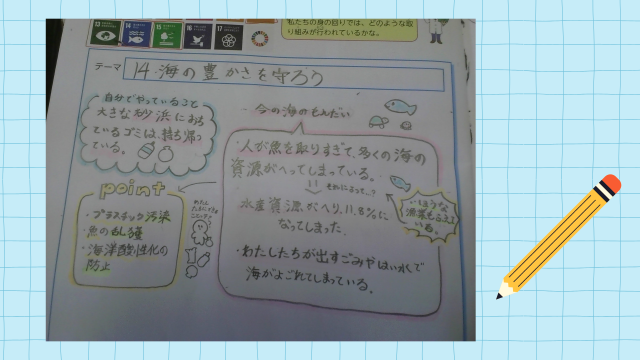 13 14 15 16 17
私たちの身の回りでは、どのような取
り組みが行われているかな。
テーマ 14.海の豊かさを守ろう
自分でやっていること
大きな砂浜におち
ているゴミは、持ち帰っ
ている。
今の海のもんだい
・人が魚を取りすぎて、多くの海の
資源がへってしまっている。
それによって、?
水産資源がへり、11.8%に
なってしまった。
いほうな
漁業もふえて
いる。
・わたしたちが出すごみやはい水で
海がよごれてしまっている。
point
・プラスチック汚染
・魚の乱獲
・海洋酸性化の
防止